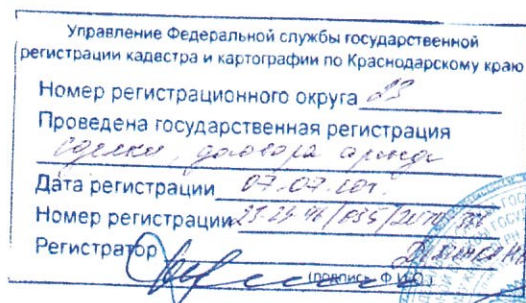 Управление Федеральной службы государственной
регистрации кадастра и картографии по Краснодарскому краю
Номер регистрационного округа 23
Проведена государственная регистрация
сделки, договора аренды
Дата регистрации 07.07.
Номер регистрации
Регистратор
(подпись, Ф.И.О.)